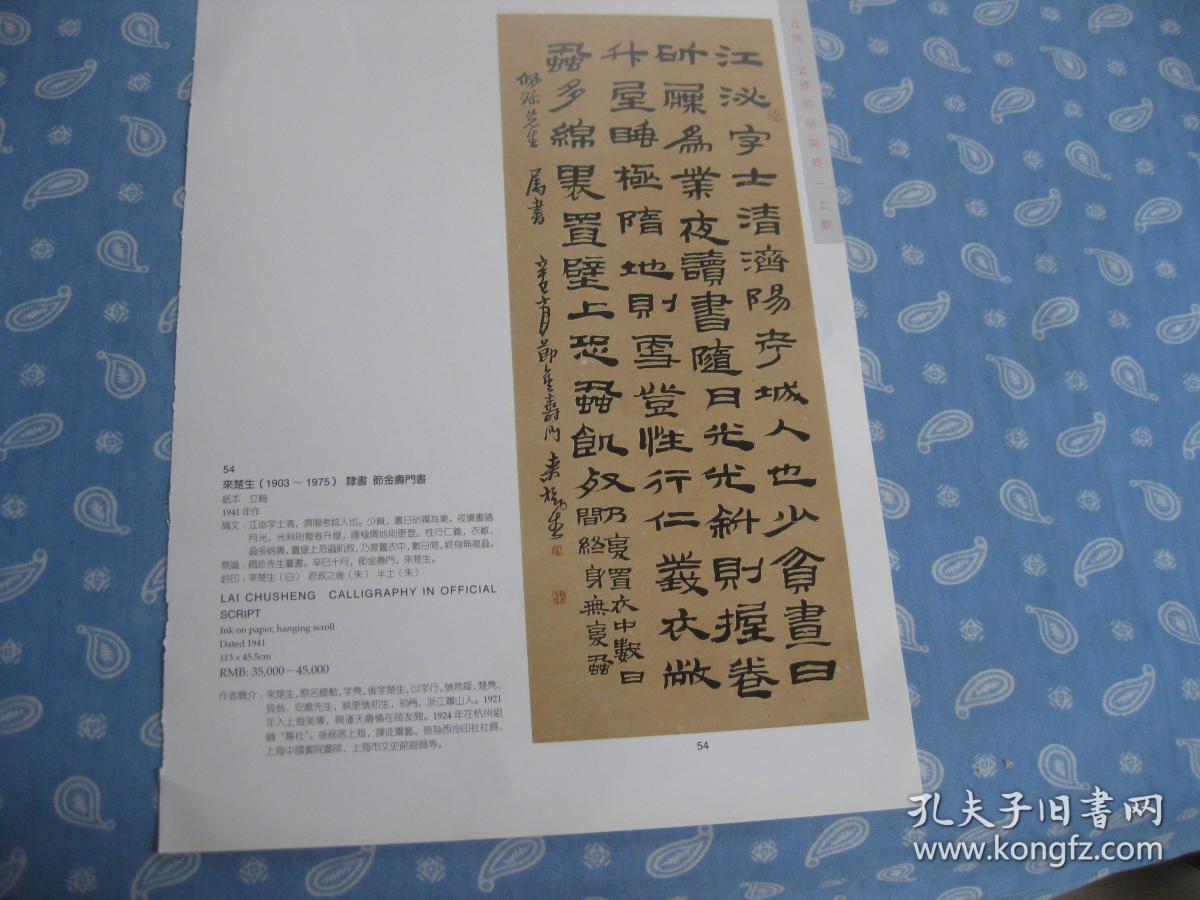 江泌字士清濟陽考城人也少貧晝日
斫屧爲業夜讀書隨月光光斜則握卷
升屋睡極隋地則更登性行仁義衣敝
蝨多綿裹置壁上恐蝨飢死乃復置衣中數日
間終身無復蝨
屬書 辛巳十月節金壽門 來楚生
54
來楚生(1903～1975) 隸書 節金壽門書
紙本 立軸
1941年作
識文:江泌字士清,濟陽考城人也。少貧,晝日斫屧為業。夜讀書隨
月光,光斜則握卷升屋,睡極隋地則更登。性行仁義,衣敝,
蝨多綿裹,置壁上恐蝨飢死,乃復置衣中,數日間,終身無復蝨。
款識:佩珍先生屬書。辛巳十月,節金壽門,來楚生。
鈐印:來楚生(白) 君叔之後(朱) 半士(朱)
LAI CHUSHENG CALLIGRAPHY IN OFFICIAL
SCRIPT
Ink on paper, hanging scroll
Dated 1941
113×45.5cm
RMB: 35,000－45,000
作者簡介:來楚生,原名稷勳,字亮,後字楚生,以字行,號然犀、楚鳧、
負翁、安處先生,晚更號初生,初升,浙江蕭山人。1921
年入上海美專,與潘天壽情在師友間。1924年在杭州組
織“蓴社”。後移居上海,課徒鬻藝。曾為西泠印社社員、
上海中國畫院畫師、上海市文史館館員等。
54
孔夫子旧書网
www.kongfz.com